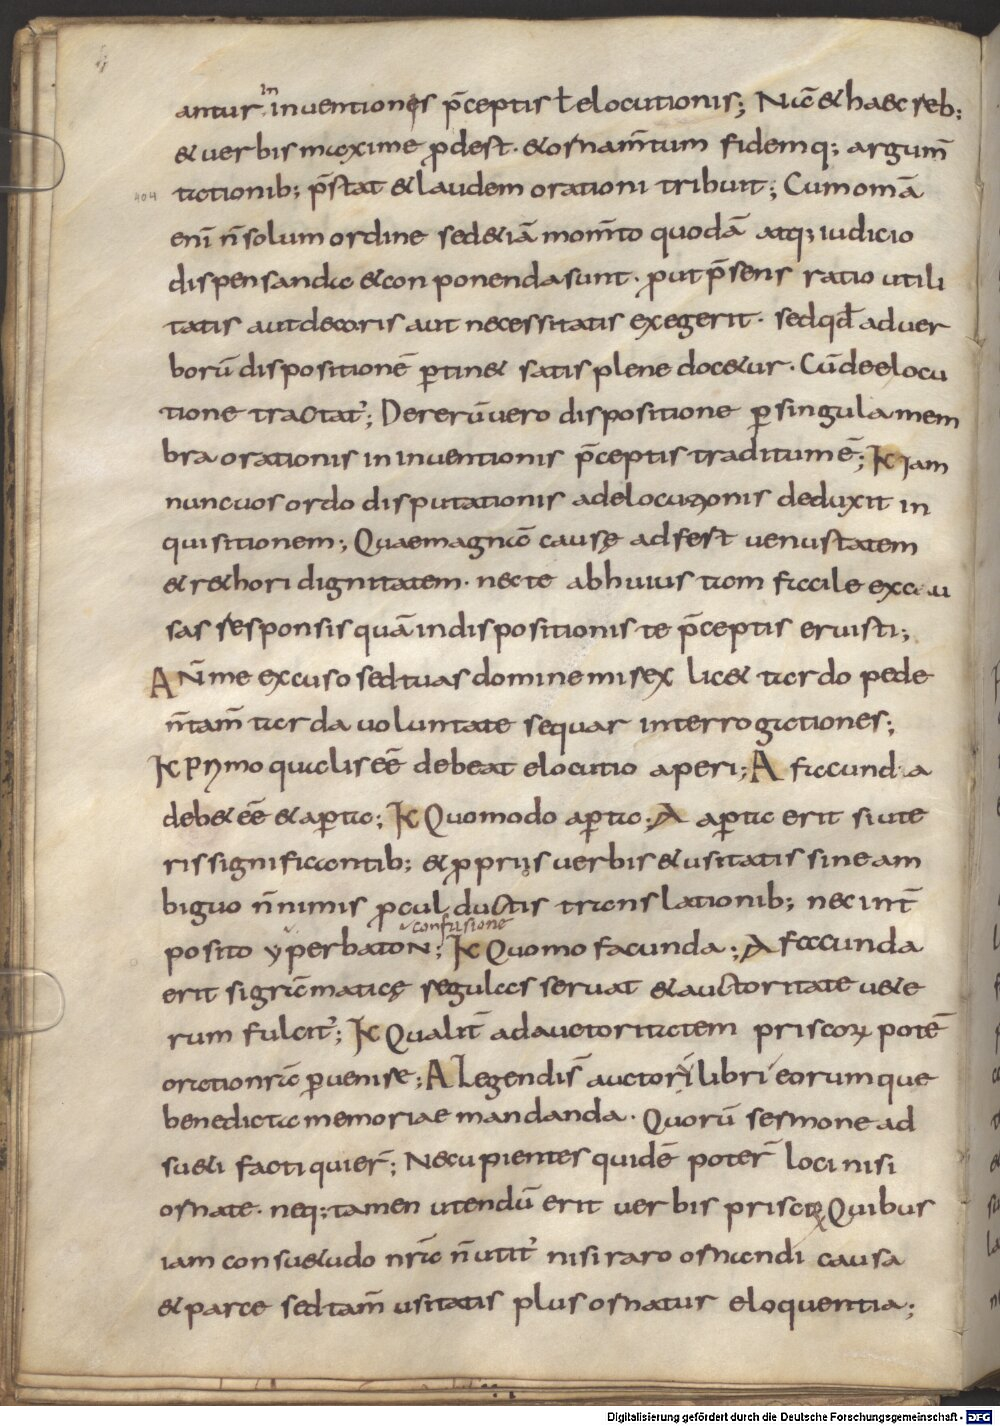 antur in inuentionis p̄ceptis ł elocutionis; Nā & haec reb;
& uerbis maxime ꝓdest · & ornam̄tum fidemq; argum̄
tationib; p̄stat & laudem orationi tribuit; Cum om̄a
eni n̄ solum ordine sed &iā mom̄to quodā atq; iudicio
dispensanda & conponenda sunt · put p̄sens ratio utili
tatis aut decoris aut necessitatis exegerit · sed qđ ad uer
borū dispositionē ꝑtin& satis plene doc&ur · Cū de elocu
tione tractat̄; De rerū uero dispositione ꝑ singula mem
bra orationis in inuentionis p̄ceptis traditum ē; K Iam
nunc uos ordo disputationis ad elocutionis deduxit in
quisitionem; Quae magnā causę adfert uenustatem
& r&hori dignitatem · nec te ab huius tam facile excu
sas responsis quā in dispositionis te p̄ceptis eruisti;
A N̄ me excuso sed tuas domine mi rex lic& tardo pede
n̄ tam̄ tarda uoluntate sequar interrogationes;
K Primo qualis eē debeat elocutio aperi; A facunda
deb& eē & aꝑta; K Quomodo aꝑta; A aꝑta erit si ute
ris significantib; & ꝓpriis uerbis & usitatis sine am
biguo n̄ nimis ꝓcul ductis translationib; nec int̄
confusione
posito yperbaton; K Quomo facunda; A facunda
erit si grāmaticę regulas seruat & auctoritate u&e
rum fulcit̄; K Qualit̄ ad auctoritatem priscoꝝ potē
oratio nr̄a ꝑuenire; A Legendis̄ auctorū libri eorumque
bene dicta memoriae mandanda · Quorū sermone ad
su&i facti quier̄; Nec upientes quidē poter̄ loci nisi
ornate · neq; tamen utendū erit uerbis priscoꝝ Quibus
iam consu&udo nr̄a n̄ utit̄ nisi raro ornandi causa
& parce sed tam̄ usitatis plus ornatur eloquentia;
404
Digitalisierung gefördert durch die Deutsche Forschungsgemeinschaft - DFG